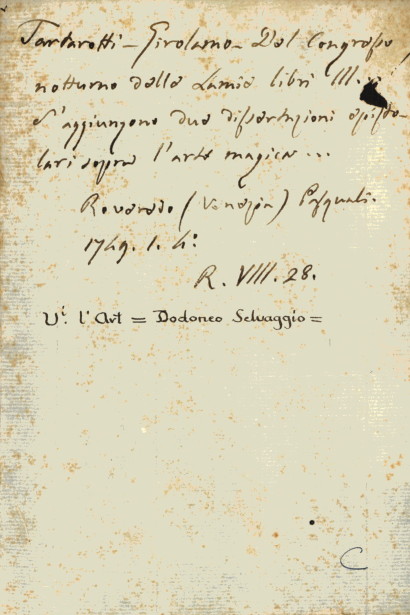 Tartarotti - Girolamo - Del Congresso
notturno delle Lamie libri III.
S'aggiungono due dissertazioni episto-
lari sopra l'arte magica ...
Rovereto (Venezia) Pasquali.
1749. 1. 4:
R. VIII. 28.
Vi. l'Art = Dodoneo Selvaggio =
C